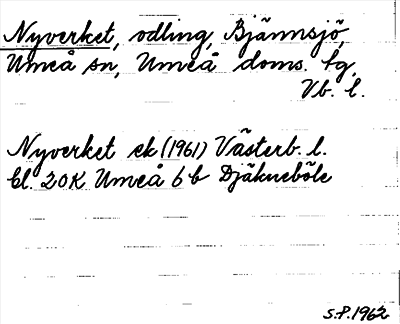 Nyverket, odling, Bjännsjö,
Umeå sn, Umeå doms. tg,
Vb. l.
Nyverket ek (1961) Västerb. l.
Bl. 20K Umeå 6 b Djäkneböle
S.P.1962